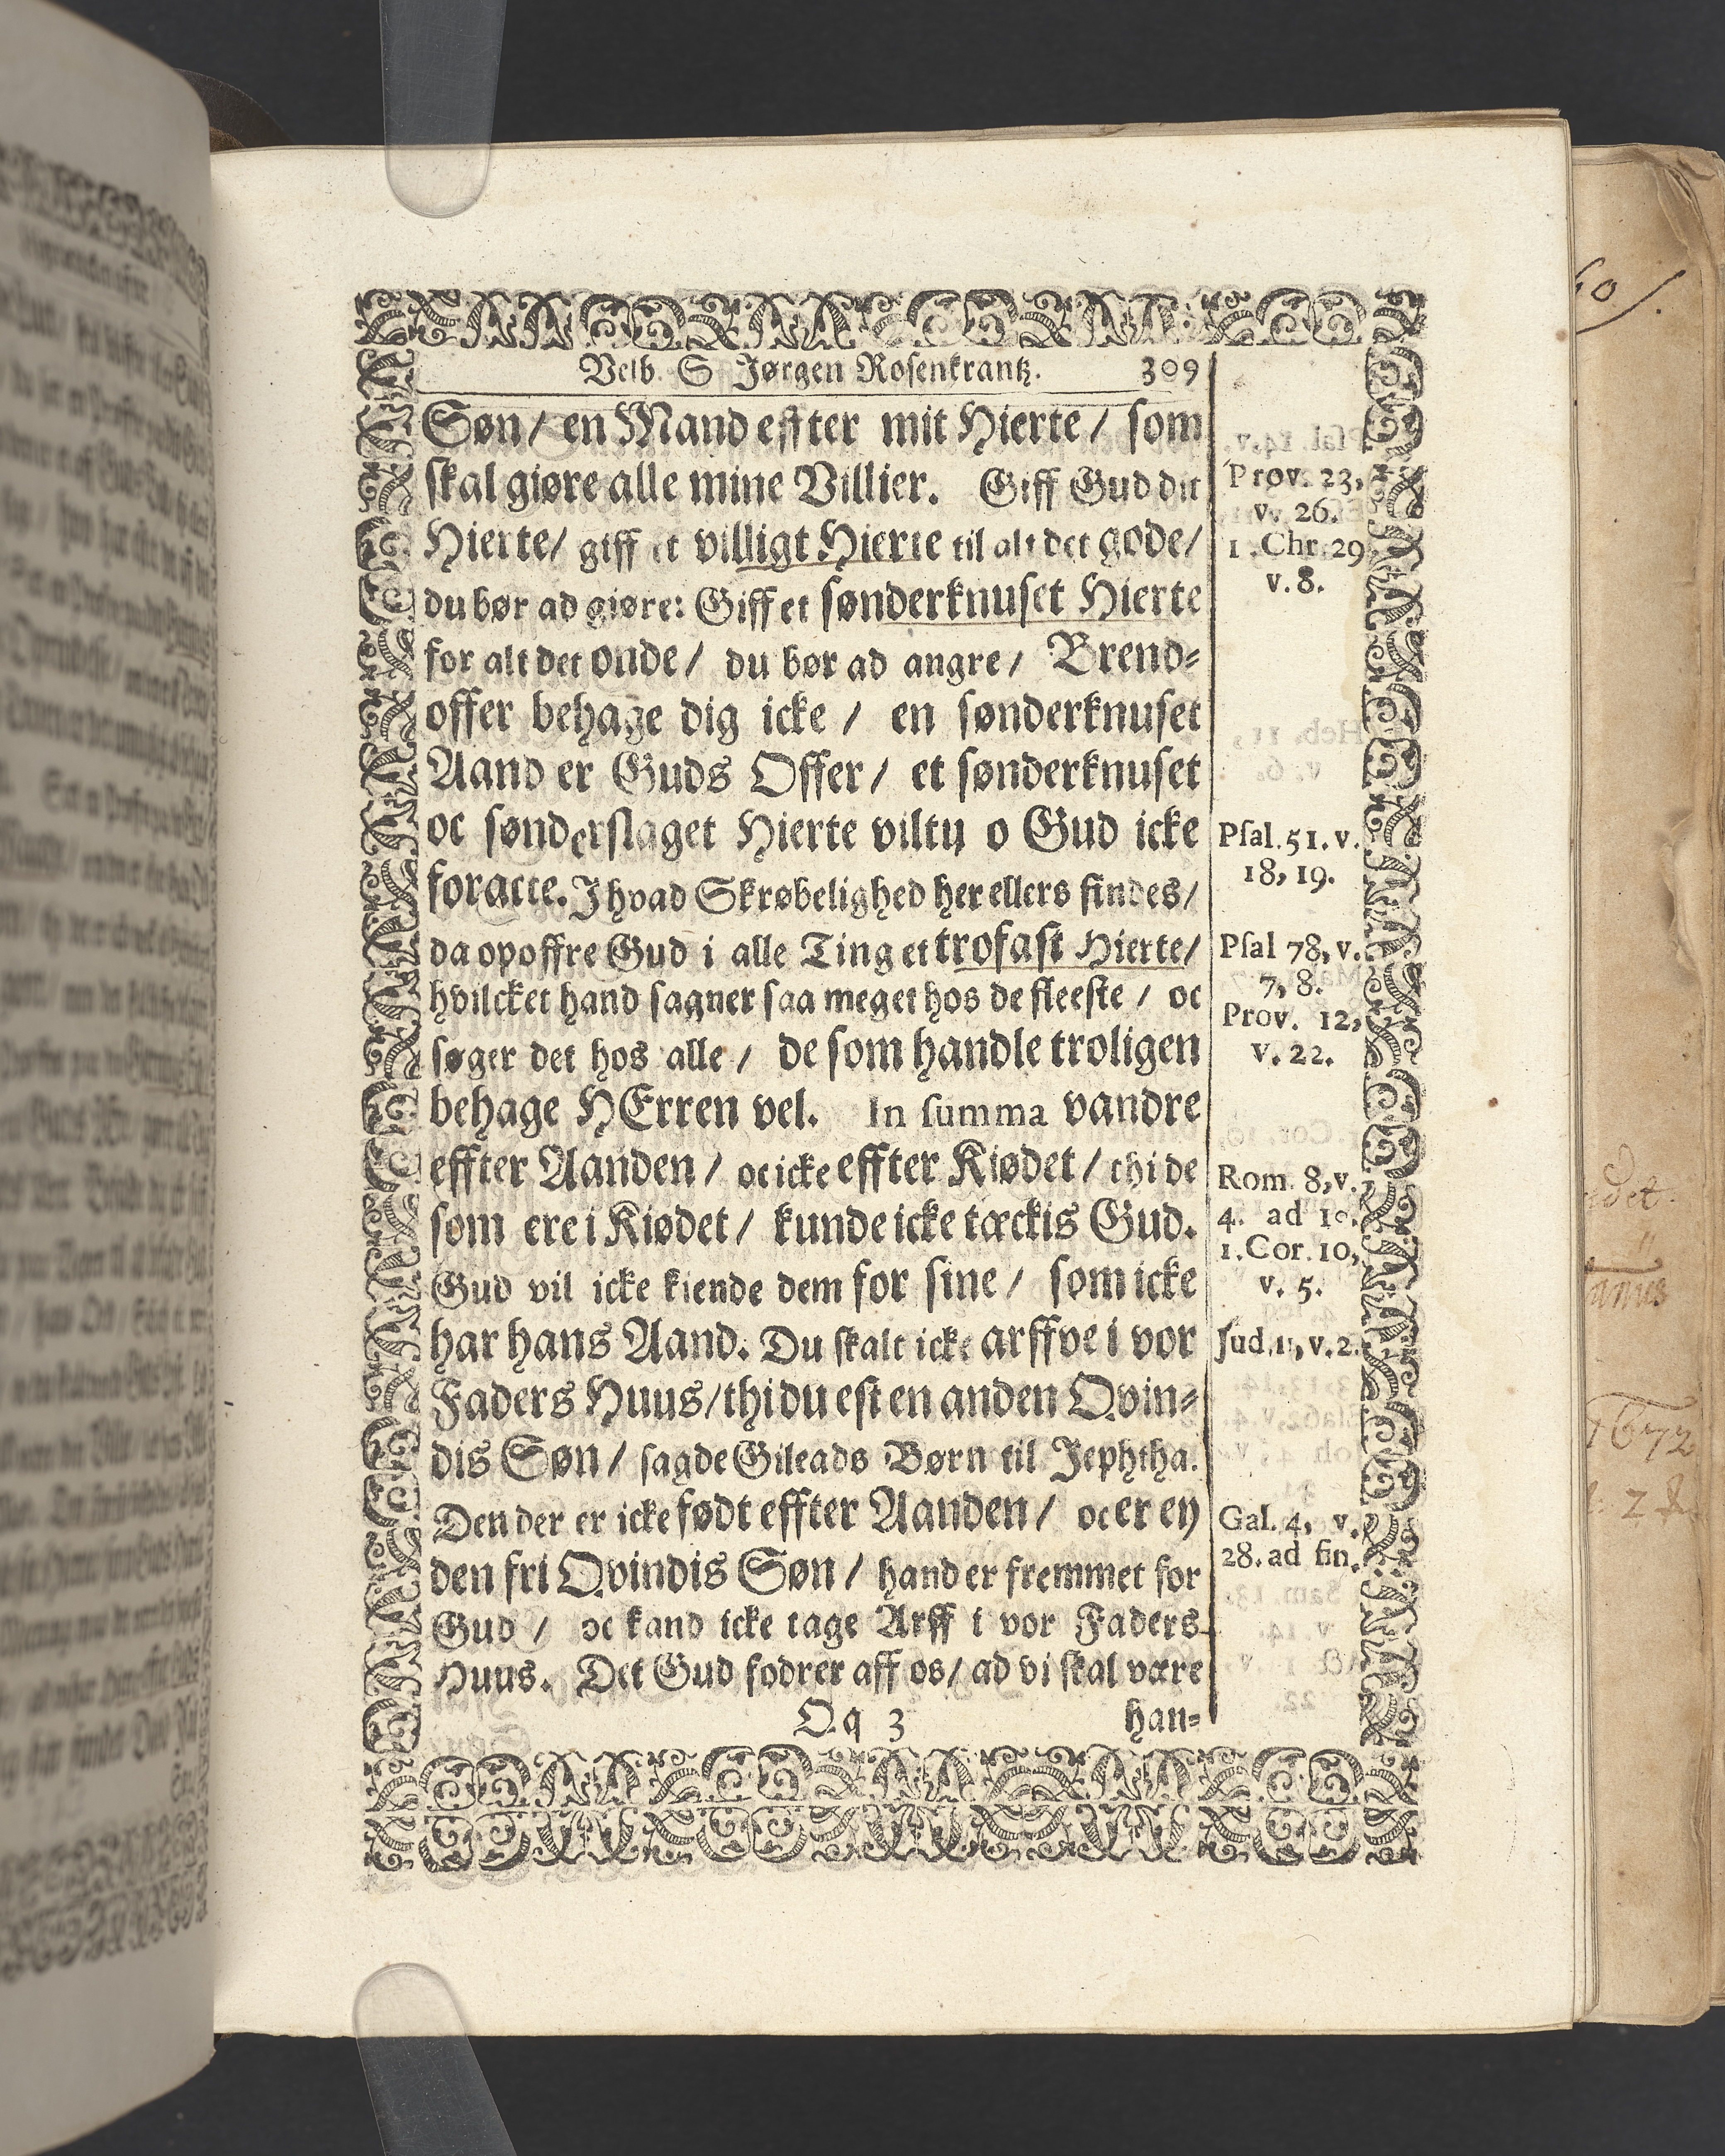 Velb. S Jørgen Rosenkrantz. 309
Søn / en Mand effter mit Hierte / som
skal giøre alle mine Villier. Giff Gud dit
Hierte / giff et villigt Hierte til alt det gode /
du bør ad giøre: Giff et sønderknuset Hierte
for alt det onde / du bør ad angre / Brend=
offer behage dig icke / en sønderknuset
Aand er Guds Offer / et sønderknuset
oc sønderslaget Hierte viltu o Gud icke
foracte. J hvad Skrøbelighed her ellers findes /
da opoffre Gud i alle Ting et trofast Hierte /
hvilcket hand sagner saa meget hos de fleeste / oc
søger det hos alle / de som handle troligen
behage HErren vel. In summa vandre
effter Aanden / oc icke effter Kiødet / thi de
som ere i Kiødet / kunde icke tæckis Gud.
Gud vil icke kiende dem for sine / som icke
har hans Aand. Du skalt icke arffve i vor
Faders Huus / thi du est en anden Qvin=
dis Søn / sagde Gileads Børn til Jephtha.
Den der er icke født effter Aanden / oc er ey
den fri Qvindis Søn / hand er fremmet for
Gud / oc kand icke tage Arff i vor Faders
Huus. Det Gud fodrer aff os / ad vi skal være
Qq 3 han=
Prov. 23,
v. 26.
1. Chr. 29
v. 8.
Psal. 51. v.
18, 19.
Psal 78, v.
7, 8.
Prov. 12,
v. 22.
Rom. 8, v.
4. ad 10.
1. Cor. 10,
v. 5.
Jud. 11, v. 2.
Gal. 4, v.
28. ad fin.
1672